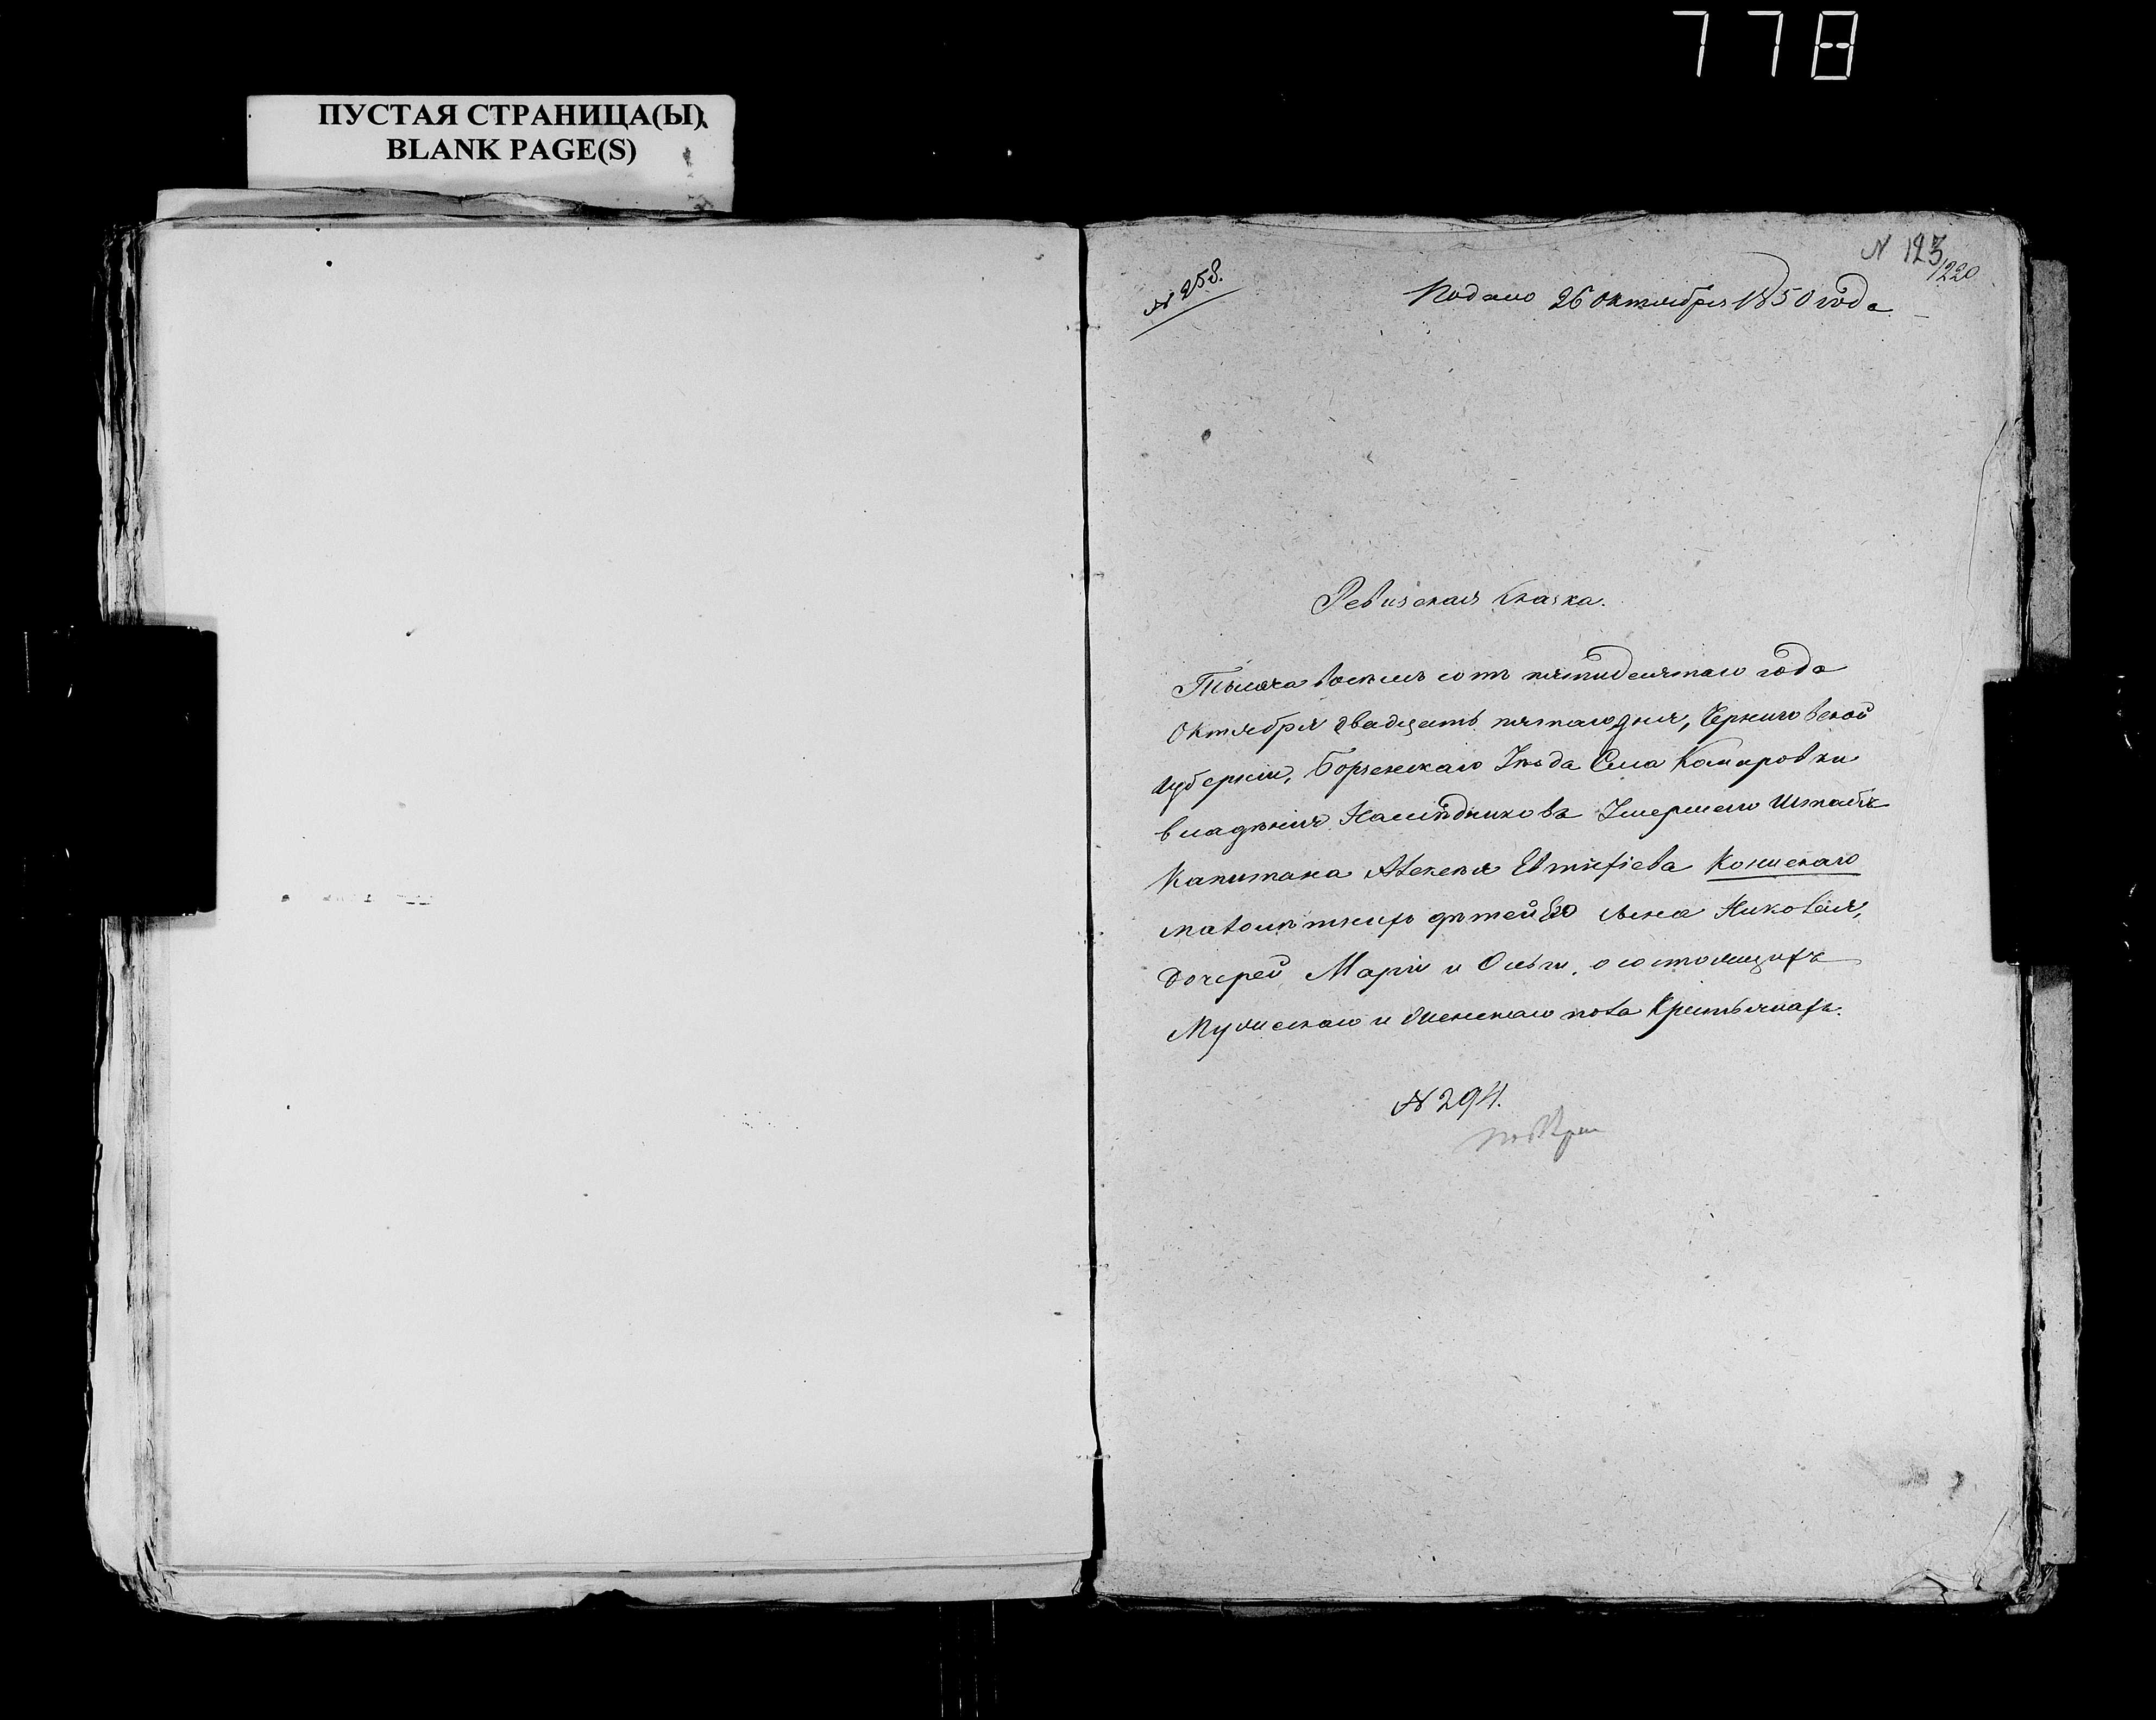 778
ПУСТАЯ СТРАНИЦА(Ы)
BLANK PAGE(S)
N 123/220
№ 258.
Подано 26 октября 1850 года
Ревизская сказка.
Тысяча восемь сотъ пятидесятаго года
Октября двадцать пятаго дня, Черниговской
Губерніи, Борзенскаго Уезда Села Комаровки
владенія Наследниковъ Умершего Штабсъ
Капитана Алексея Евтифіева Кониского
малолетнихъ детей Его сына Николая,
дочерей Маріи и Ольги, о состоящихъ
Мужескаго и женскаго пола Крестьянахъ.
№ 294.